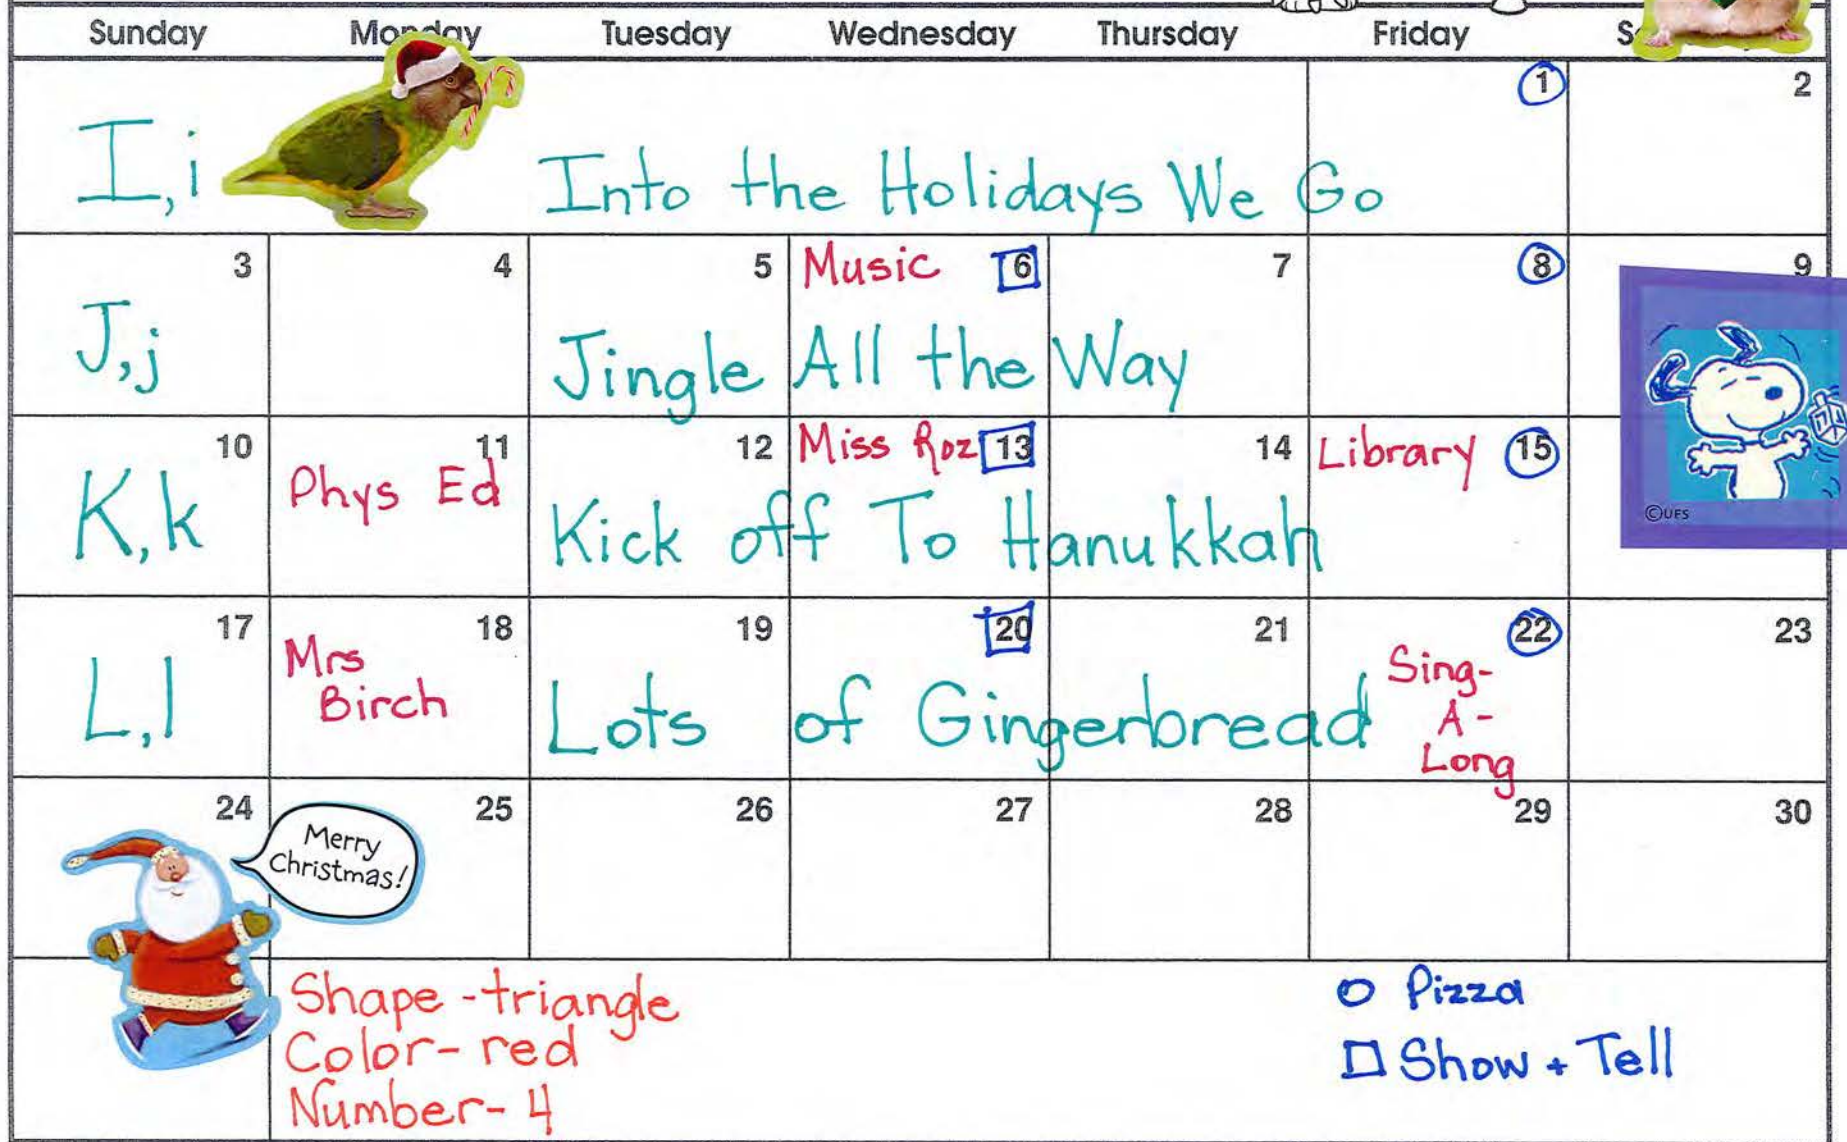 Sunday Monday Tuesday Wednesday Thursday Friday
1 2
I,i Into the Holidays We Go
3 4 5 Music 6 7 8 9
J,j Jingle All the Way
10 11 12 Miss Roz 13 14 Library 15
Phys Ed
K,k Kick off To Hanukkah
©UFS
17 18 19 20 21 22 23
Mrs
Birch
Sing-
A-
Long
L,l Lots of Gingerbread
24 25 26 27 28 29 30
Merry
Christmas!
Shape -triangle
Color- red
Number- 4
O Pizza
□ Show + Tell